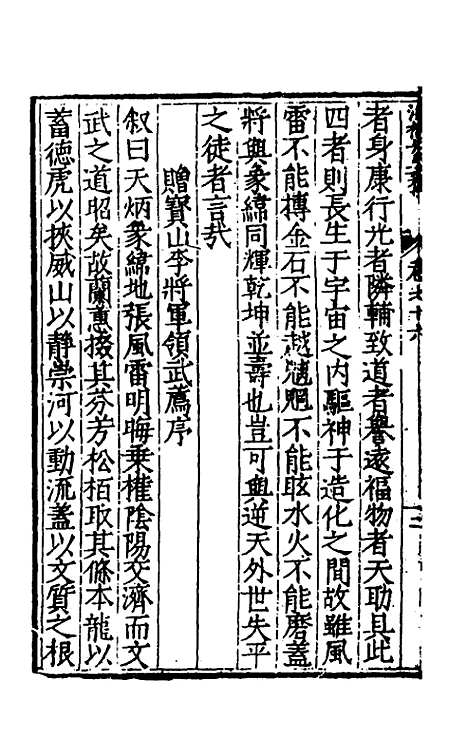 者身康行光者隣輔致道者譽遠福物者天助具此
四者則長生于宇宙之内驅神于造化之間故雖風
雷不能摶金石不能越魑魍不能眩水火不能磨蓋
將與象緯同輝乾坤並壽也豈可與逆天外世失平
之徒者言㦲
贈寳山李將軍領武薦序
叙曰天炳象緯地張風雷明晦乗權陰陽文濟而文
武之道昭矣故蘭蕙掇其芬芳松栢取其條本龍以
蓄徳虎以挾威山以静崇河以動流蓋以文質之根